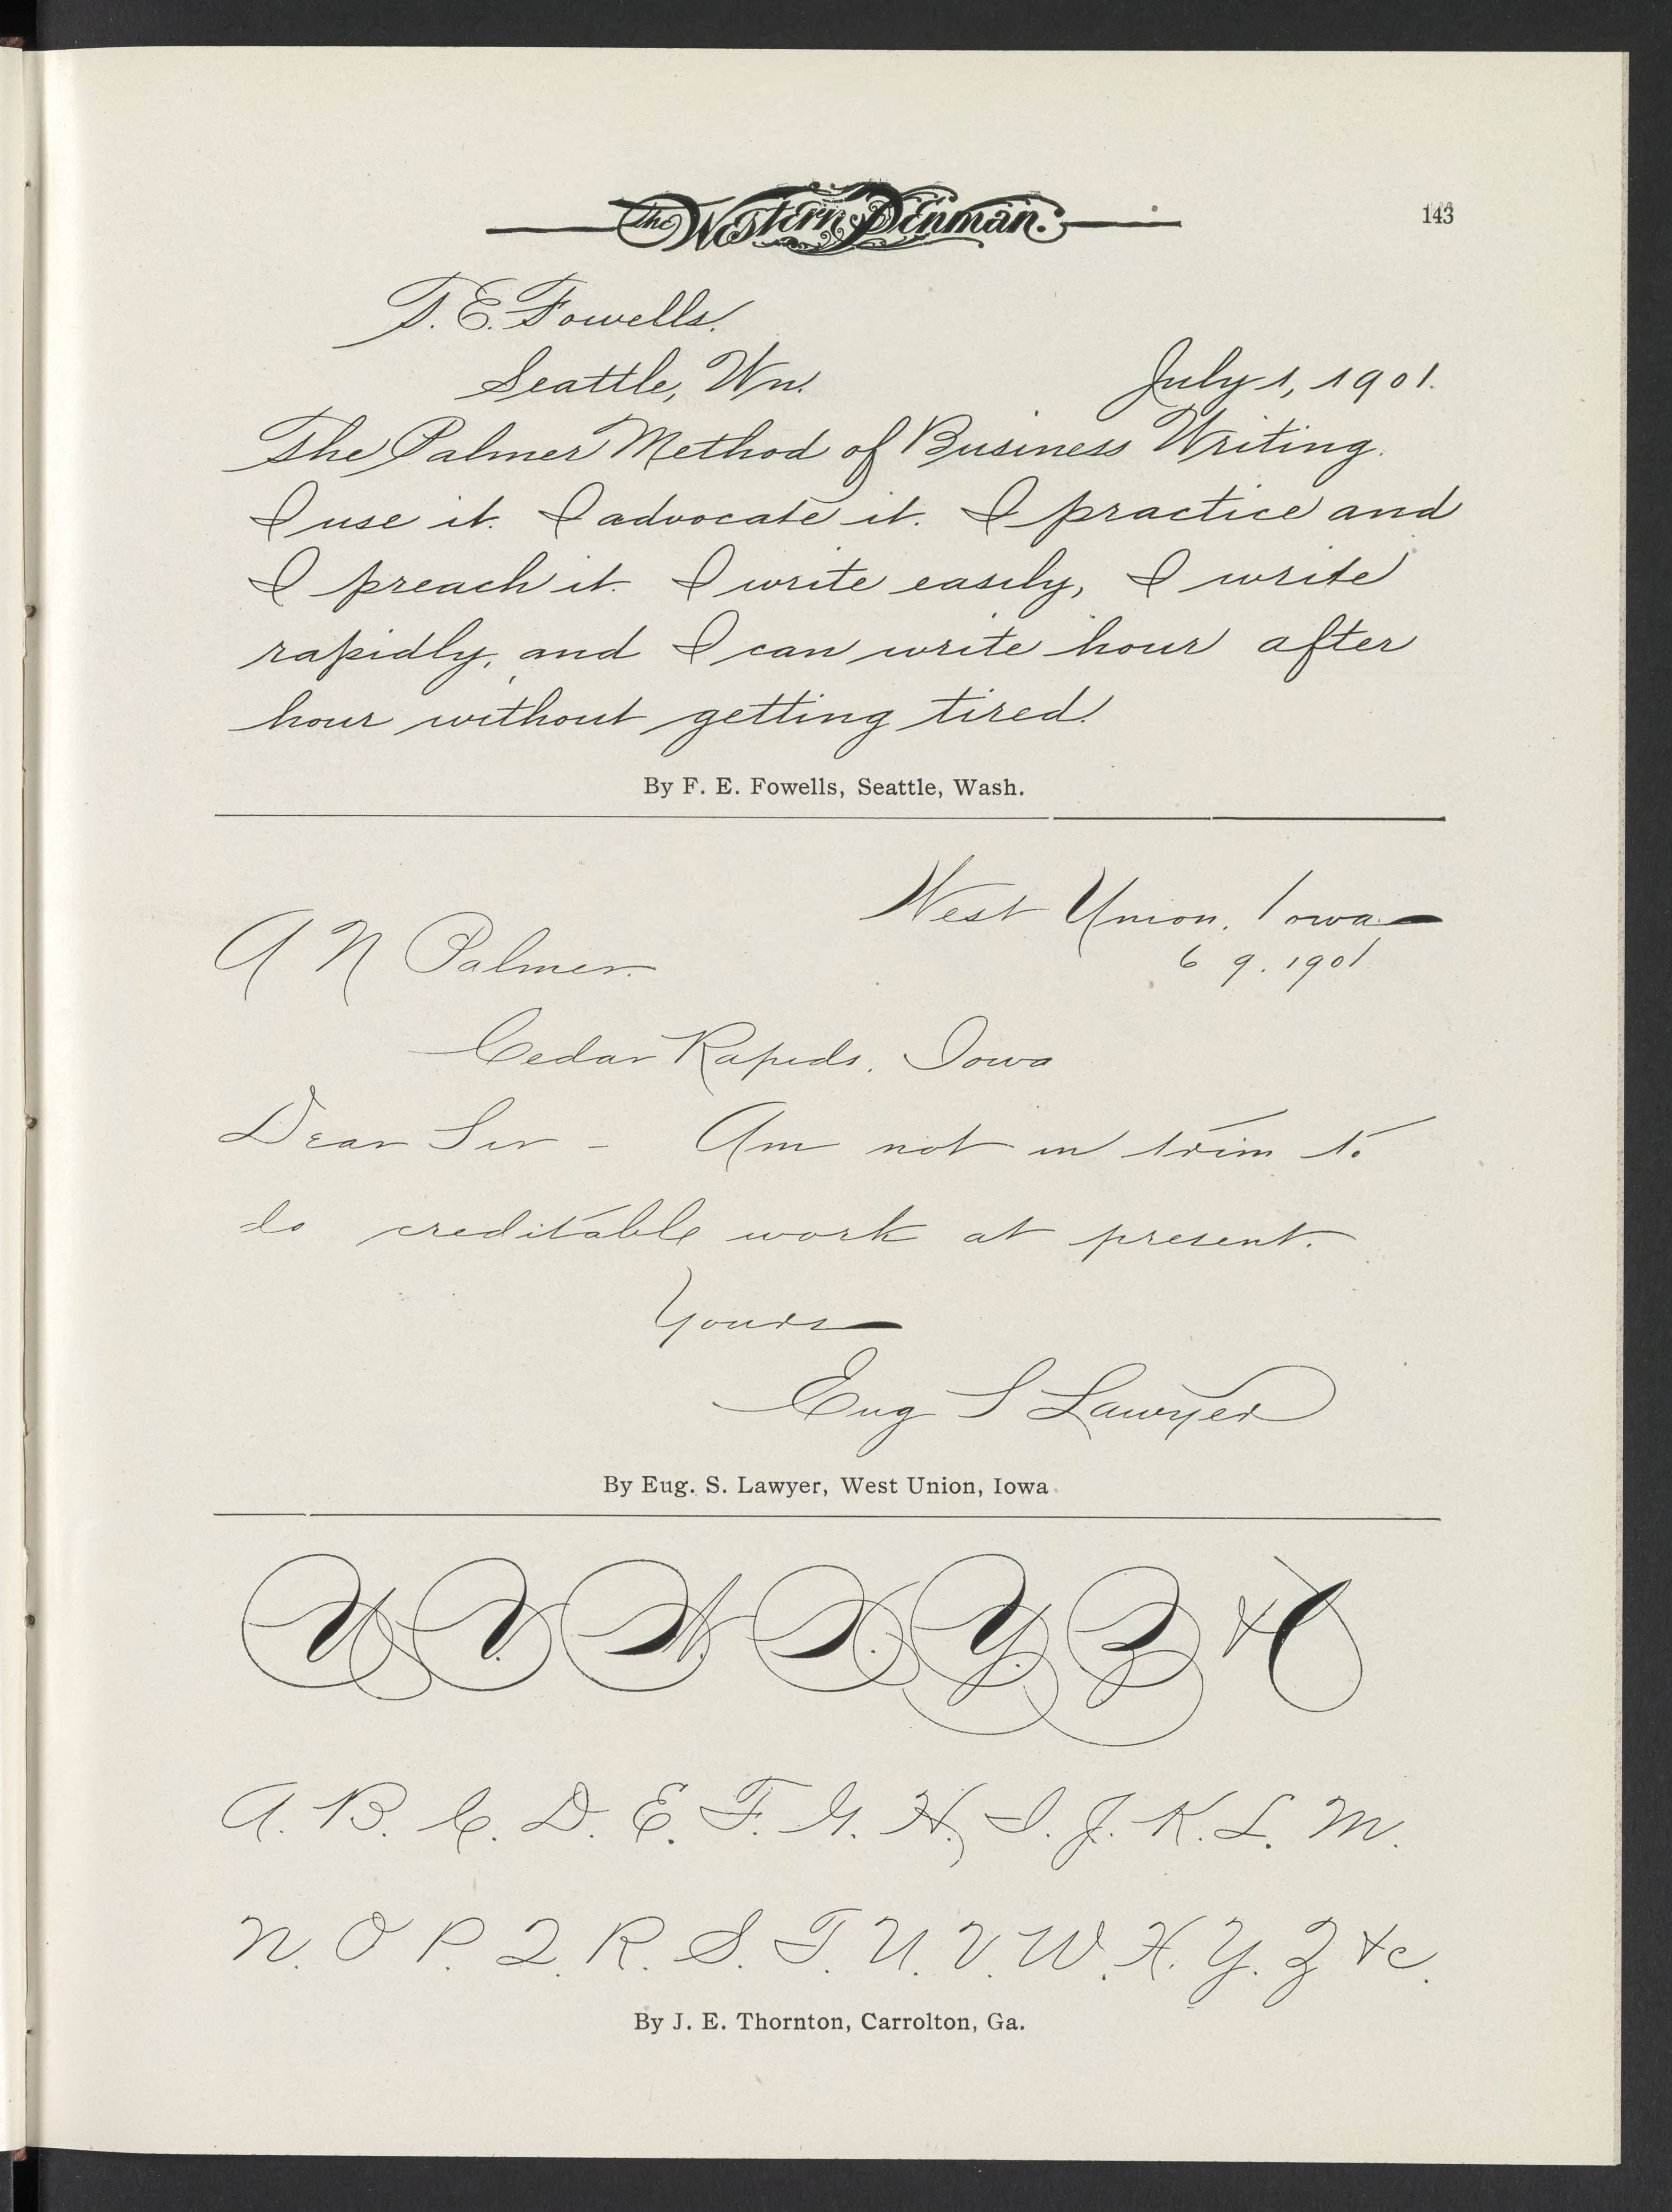 The Western Penman. 143
F. E. Fowells.
Seattle, Wn. July 1, 1901.
The Palmer Method of Business Writing.
I use it. I advocate it. I practice and
I preach it. I write easily, I write
rapidly, and I can write hour after
hour without getting tired.
By F. E. Fowells, Seattle, Wash.
West Union, Iowa
A N Palmer.
6 9. 1901
Cedar Rapids, Iowa
Dear Sir - Am not in trim to
do creditable work at present.
Yours
Eug S Lawyer
By Eug. S. Lawyer, West Union, Iowa.
U. V. W. X. Y. Z &C
A. B. C. D. E. F. G. H. I. J. K. L. M.
N. O P. Q. R. S. T. U. V. W. X. Y. Z &c.
By J. E. Thornton, Carrolton, Ga.